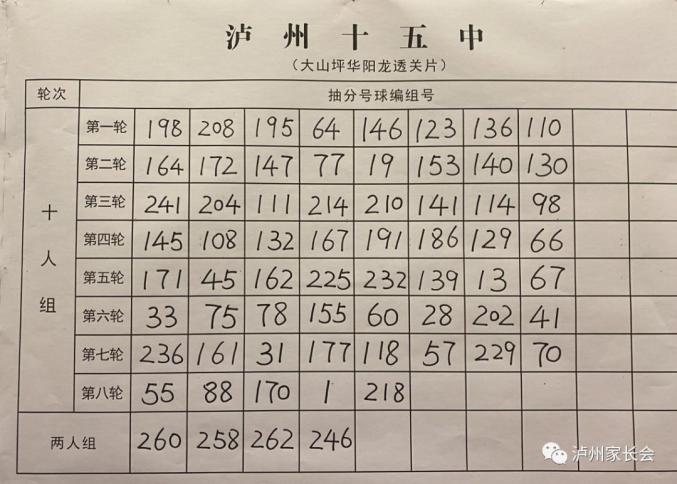 泸州十五中
（大山坪华阳龙透关片）
轮次 抽分号球编组号
十人组
第一轮 198 208 195 64 146 123 136 110
第二轮 164 172 147 77 19 153 140 130
第三轮 241 204 111 214 210 141 114 98
第四轮 145 108 132 167 191 186 129 66
第五轮 171 45 162 225 232 139 13 67
第六轮 33 75 78 155 60 28 202 41
第七轮 236 161 31 177 118 57 229 70
第八轮 55 88 170 1 218
两人组 260 258 262 246
泸州家长会